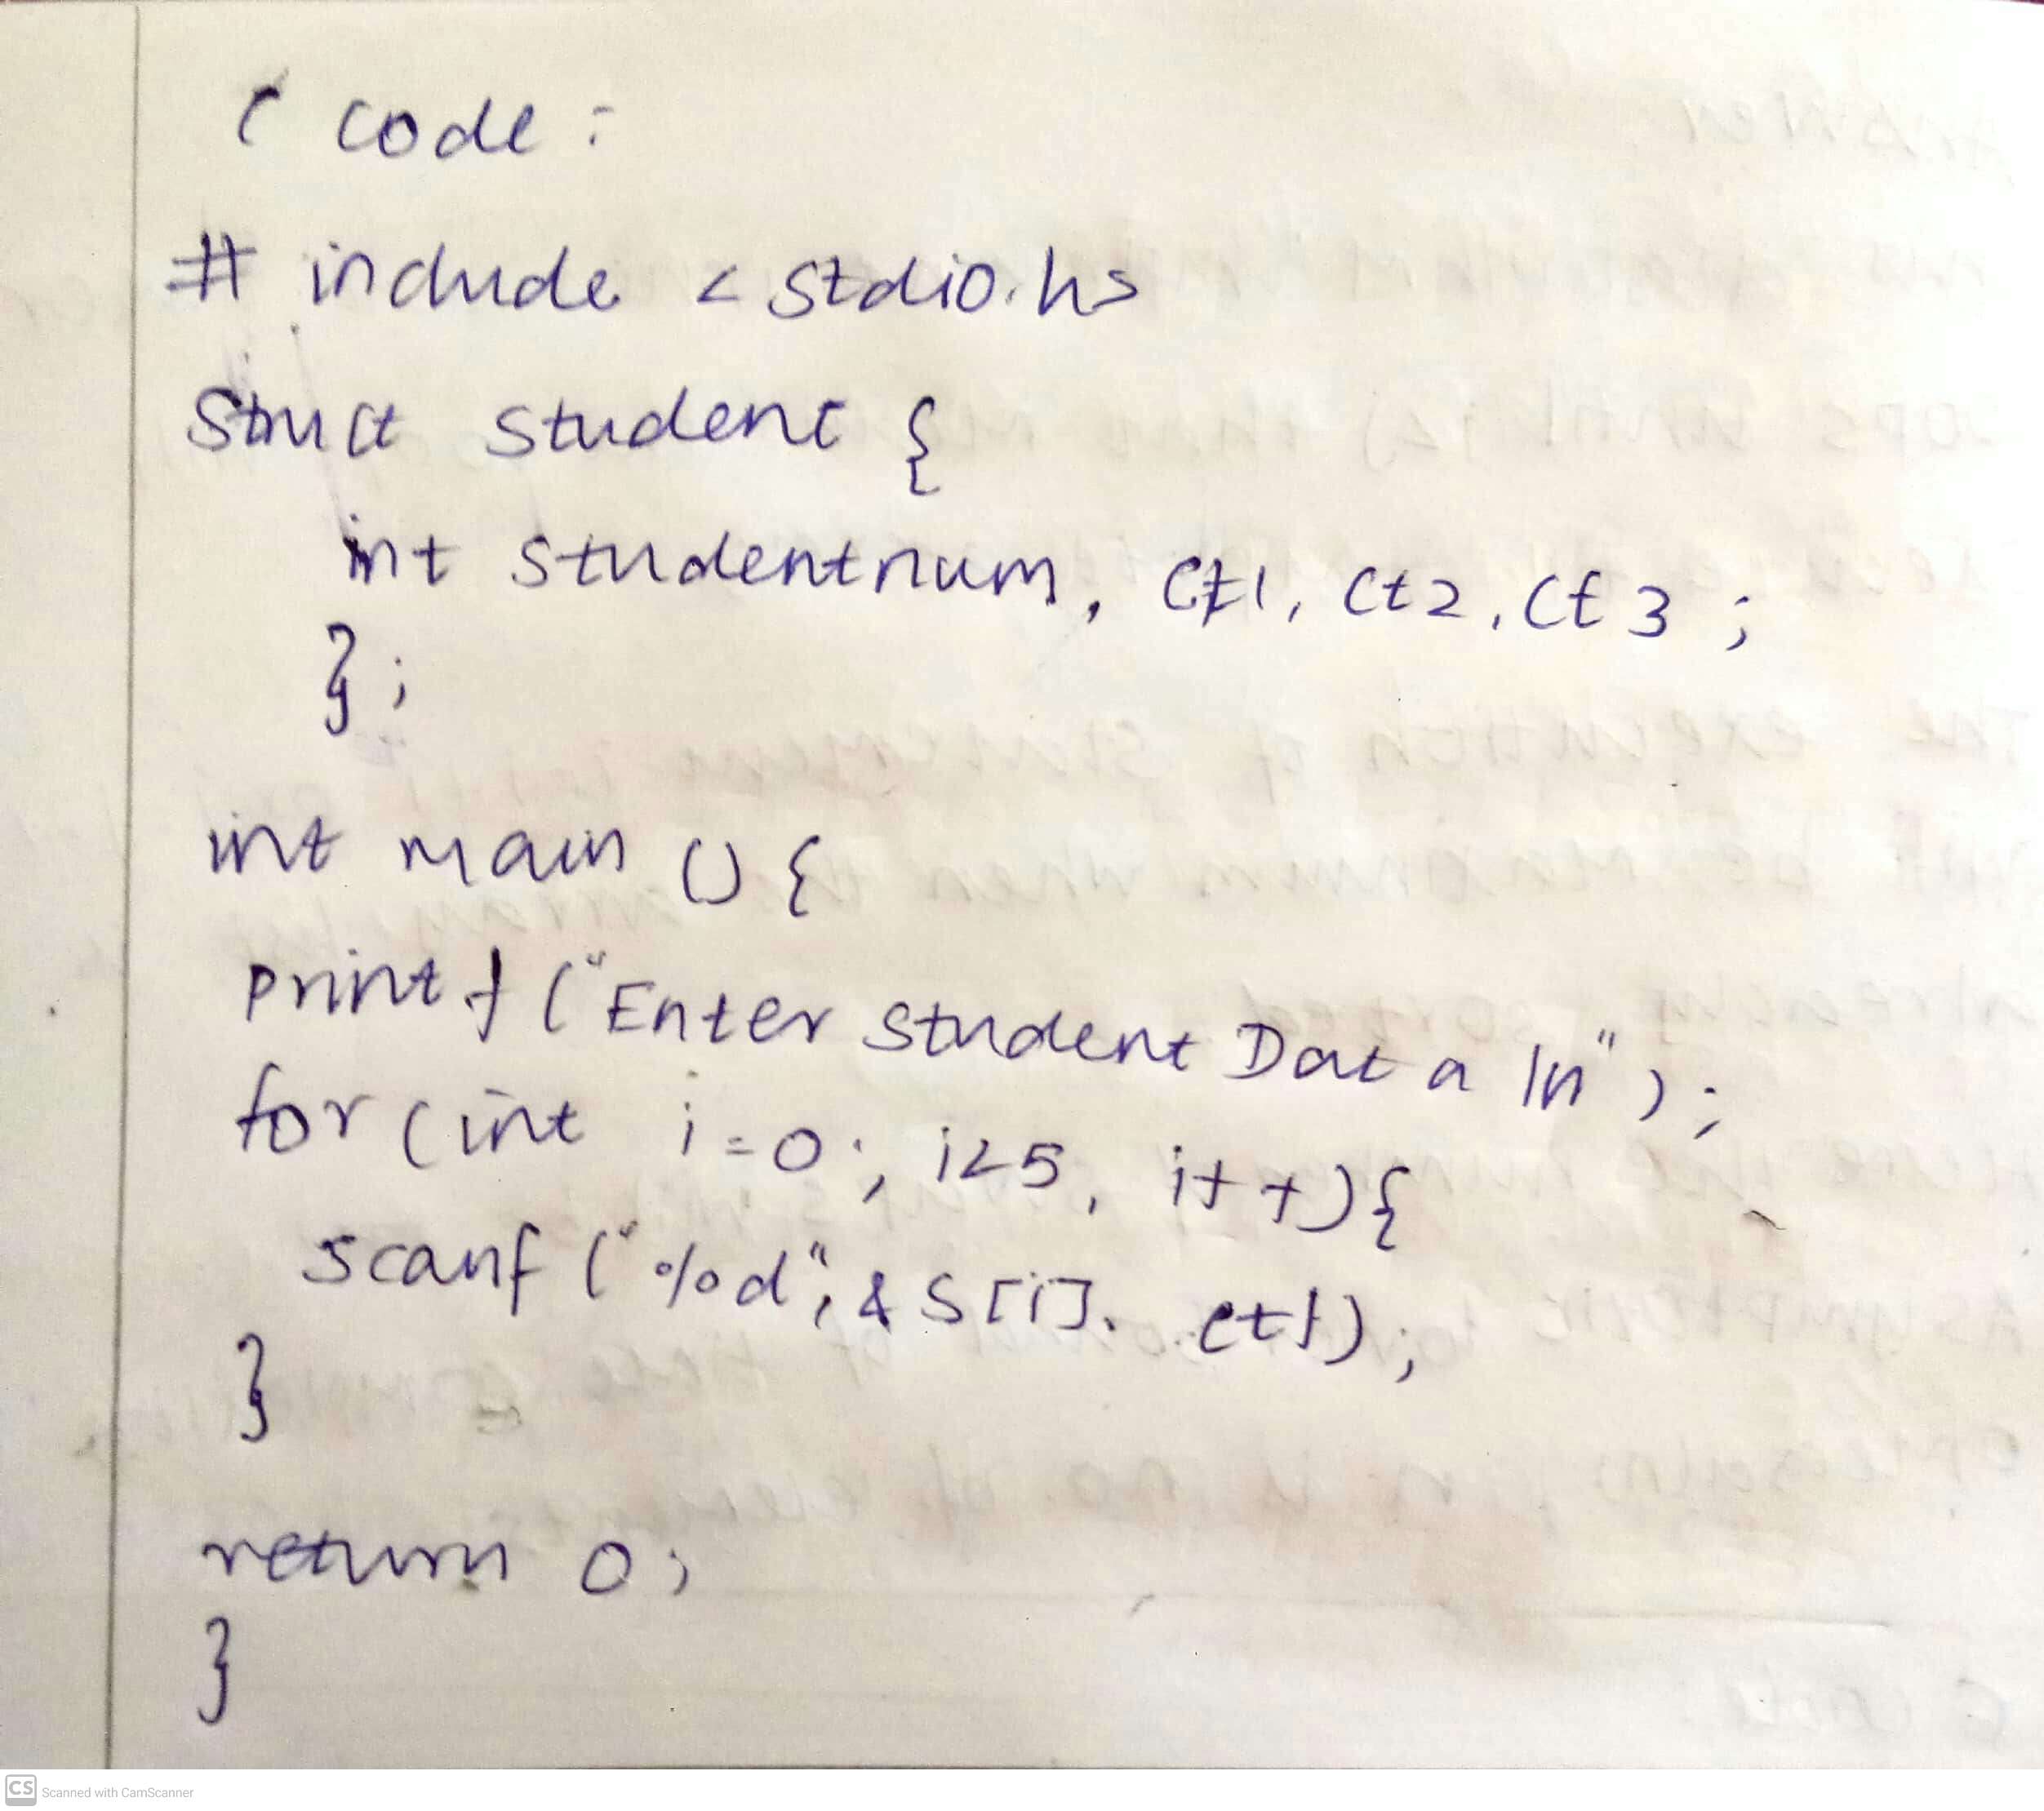 C code:
# include <stdio.h>
Struct student {
int studentnum, ct1, ct2, ct3;
};
int main () {
printf ("Enter student Data \n");
for (int i=0; i<5, i++){
scanf ("%d", &S[i]. ct1);
}
return 0;
}
CS Scanned with CamScanner